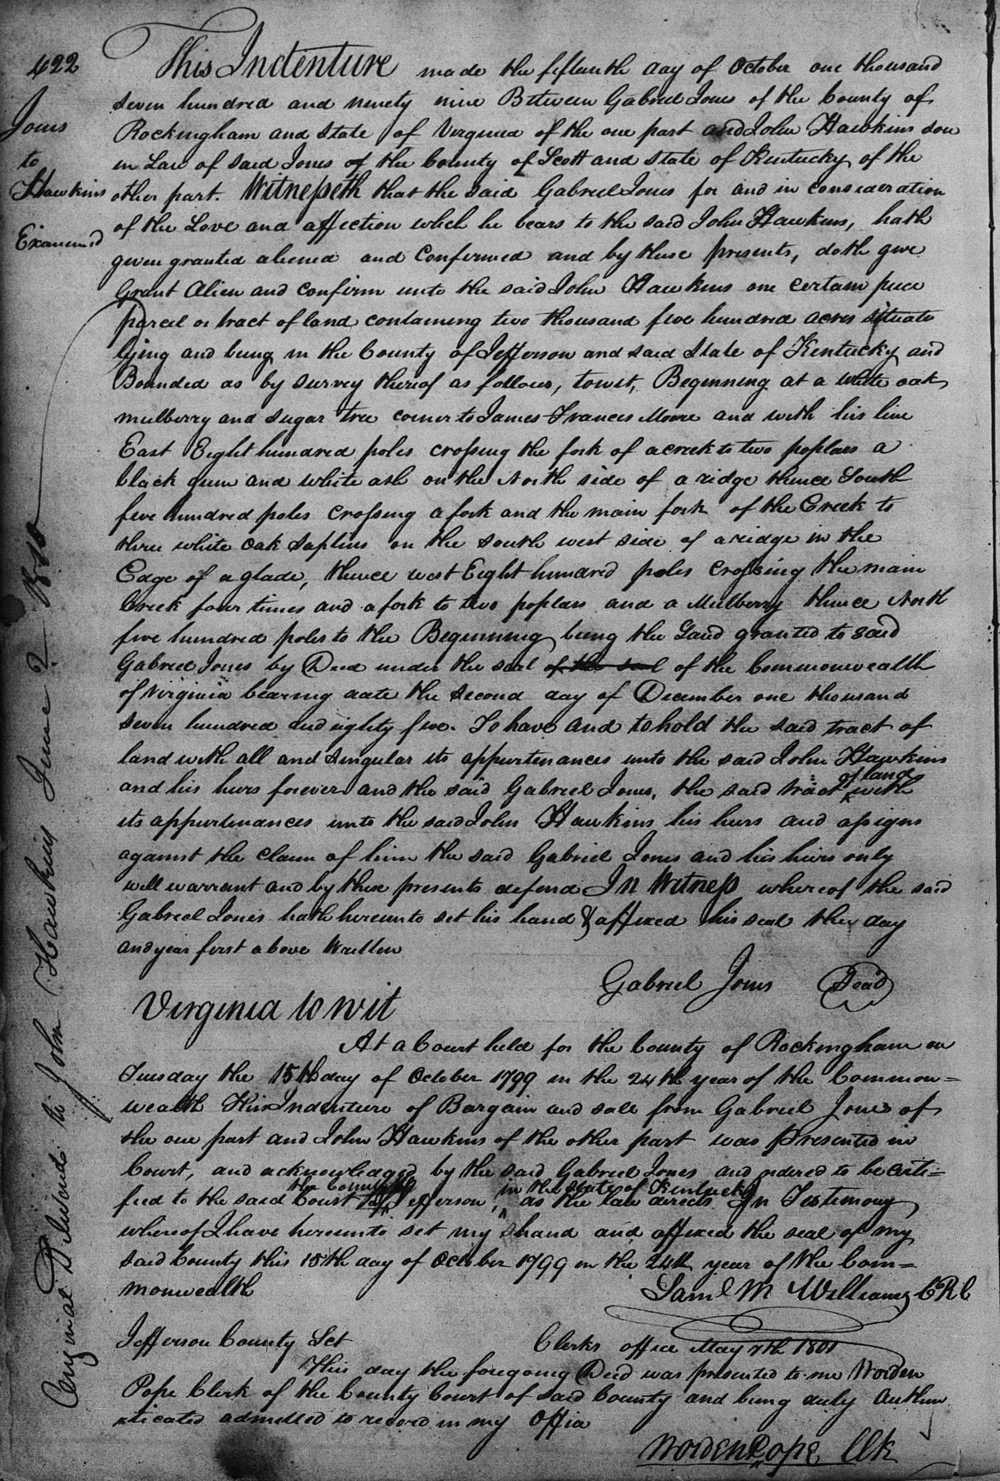 422
Jones
to
Hawkins
Examined
This Indenture made the fifteenth day of October one thousand
seven hundred and ninety nine Between Gabriel Jones of the County of
Rockingham and State of Virginia of the one part and John Hawkins son
in Law of said Jones of the County of Scott and State of Kentucky of the
other part. Witnesseth that the said Gabriel Jones for and in consideration
of the Love and affection which he bears to the said John Hawkins, hath
given granted aliened and Confirmed and by these presents, doth give
Grant Alien and confirm unto the said John Hawkins one certain piece
parcel or tract of land containing two thousand five hundred acres situate
lying and being in the County of Jefferson and said State of Kentucky and
Bounded as by survey thereof as follows, towit, Beginning at a white oak
mulberry and sugar tree corner to James Francis Moore and with his line
East Eight hundred poles crossing the fork of a creek to two poplars a
black gum and white ash on the North side of a ridge thence South
five hundred poles crossing a fork and the main fork of the Creek to
three white oak saplins on the south west side of a ridge in the
Edge of a glade, thence west Eight hundred poles crossing the main
Creek four times and a fork to two poplars and a Mulberry thence North
five hundred poles to the Beginning being the Land granted to said
Gabriel Jones by Deed under the seal of the seal of the Commonwealth
of Virginia bearing date the second day of December one thousand
seven hundred and eighty five. To have and to hold the said tract of
land with all and singular its appurtenances unto the said John Hawkins
and his heirs forever and the said Gabriel Jones, the said tract of land with
its appurtenances unto the said John Hawkins his heirs and assigns
against the claim of him the said Gabriel Jones and his heirs only
will warrant and by these presents defend In Witness whereof the said
Gabriel Jones hath hereunto set his hand & affixed his seal the day
and year first above Written
Gabriel Jones Seal
Virginia to wit
At a Court held for the County of Rockingham on
Tuesday the 15th day of October 1799 in the 24th year of the Common=
wealth This Indenture of Bargain and sale from Gabriel Jones of
the one part and John Hawkins of the other part was presented in
Court, and acknowledged by the said Gabriel Jones and ordered to be certi=
fied to the said Court the County of Jefferson, in the State of Kentucky as the law directs. In Testimony
whereof I have hereunto set my hand and affixed the seal of my
said County this 15th day of October 1799 in the 24th year of the Com=
monwealth
Saml M Williams CRC
Jefferson County Sct Clerks office May 7th 1801
This day the foregoing Deed was presented to me Worden
Pope Clerk of the County Court of said County and being duly Authen
ticated admitted to record in my Office
Worden Pope Clk
Original Delivered to John Hawkins June 2 1810